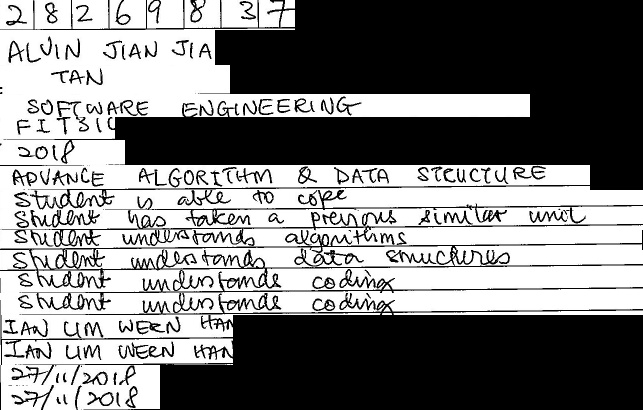 2 8 2 6 9 8 3 7
ALVIN JIAN JIA
TAN
SOFTWARE ENGINEERING
FIT310
2018
ADVANCE ALGORITHM & DATA STRUCTURE
Student is able to cope
Student has taken a previous similar unit
Student understands algorithms
Student understands data structures
Student understands coding
Student understands coding
IAN LIM WERN HAN
IAN LIM WERN HAN
27/11/2018
27/11/2018